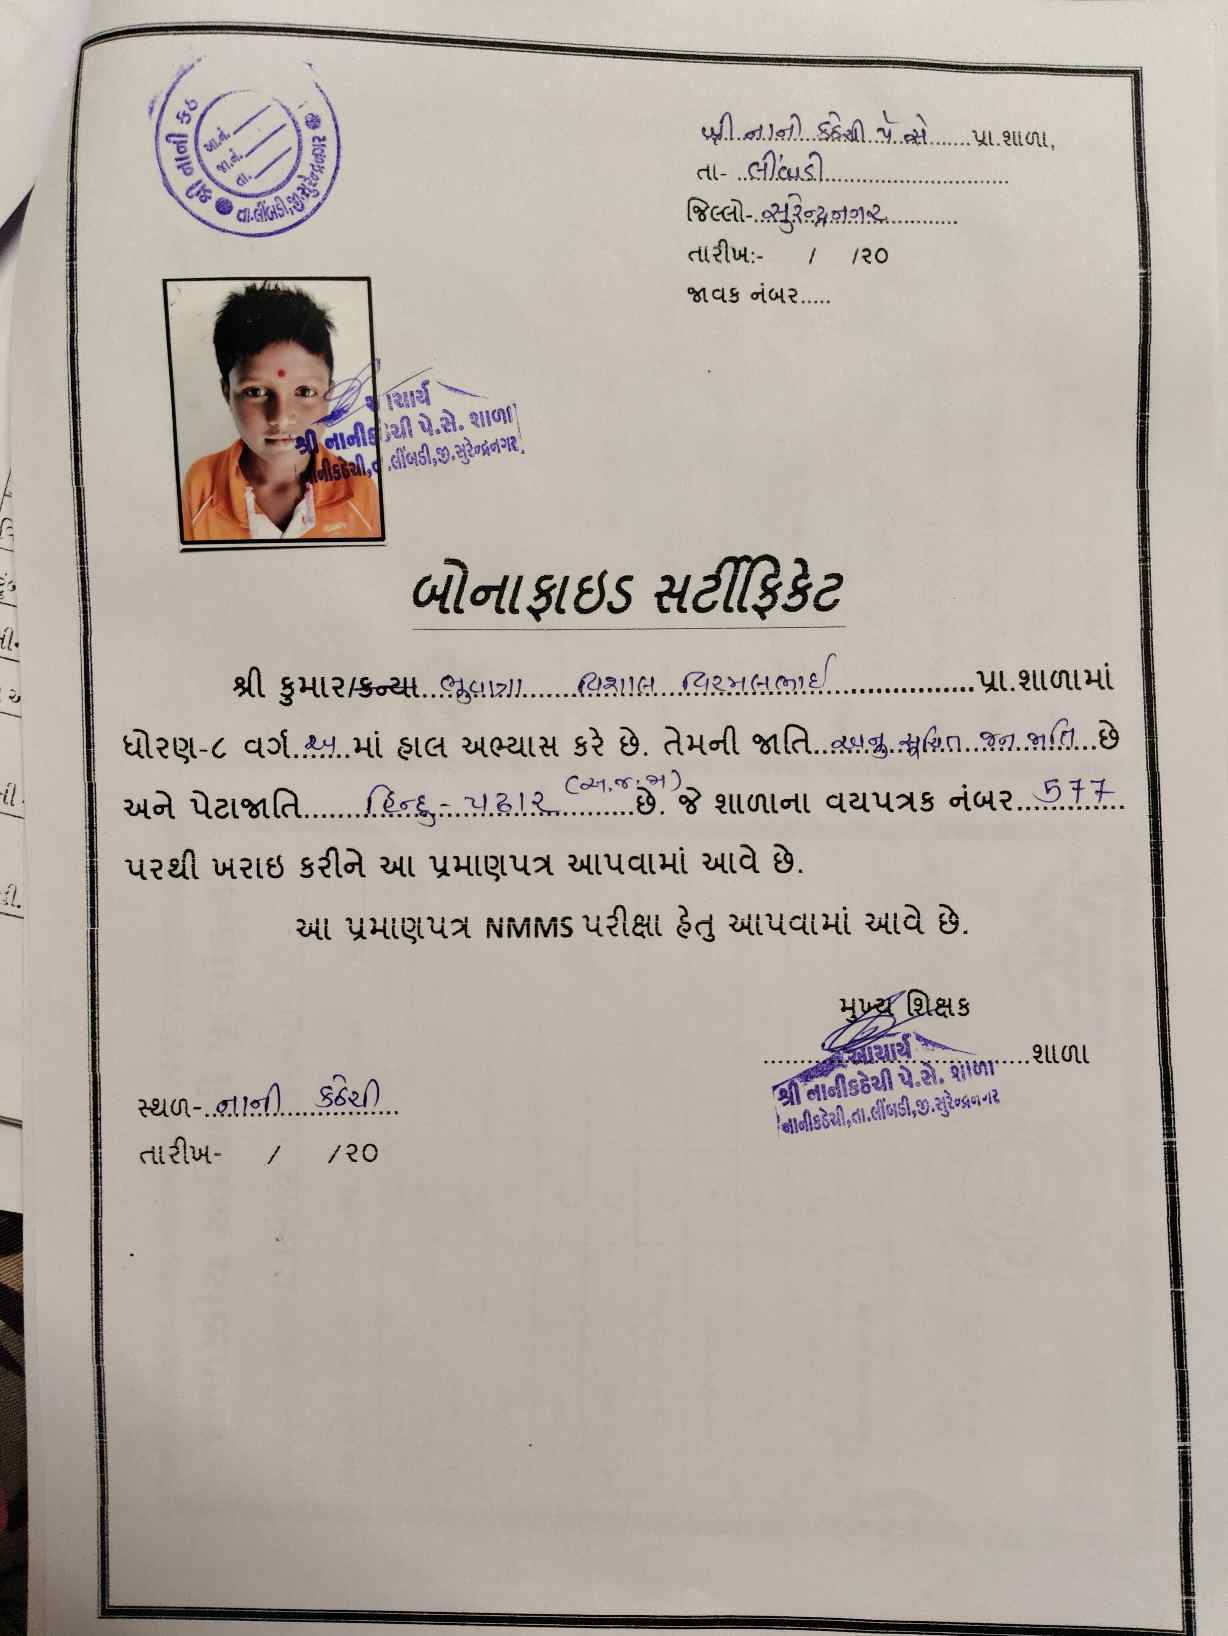 શ્રી નાની કઠ
આ.નં.
જા.નં.
તા.
તા.લીંબડી,જી.સુરેન્દ્રનગર
શ્રી નાની કઠેચી પે. સે ...... પ્રા.શાળા,
તા- ..લીંબડી..............................
જિલ્લો-..સુરેન્દ્રનગર............
તારીખ:- / /૨૦
જાવક નંબર.....
આચાર્ય
શ્રી નાનીકઠેચી પે.સે. શાળા
નાનીકઠેચી,તા.લીંબડી,જી.સુરેન્દ્રનગર.
બોનાફાઇડ સર્ટીફિકેટ
શ્રી કુમાર/કન્યા.. ...... વિશાલ વિરમલભાઈ..................પ્રા.શાળામાં
ધોરણ-૮ વર્ગ..અ..માં હાલ અભ્યાસ કરે છે. તેમની જાતિ..અનુ સૂચિત જન જાતિ...છે
અને પેટાજાતિ........હિન્દુ - પઢાર (અ.જ.જા)..........છે. જે શાળાના વયપત્રક નંબર...577..
પરથી ખરાઇ કરીને આ પ્રમાણપત્ર આપવામાં આવે છે.
આ પ્રમાણપત્ર NMMS પરીક્ષા હેતુ આપવામાં આવે છે.
મુખ્ય શિક્ષક
.......................................શાળા
આચાર્ય
શ્રી નાનીકઠેચી પે.સે. શાળા
નાનીકઠેચી,તા.લીંબડી,જી.સુરેન્દ્રનગર
સ્થળ-..નાની કઠેચી..
તારીખ- / /૨૦